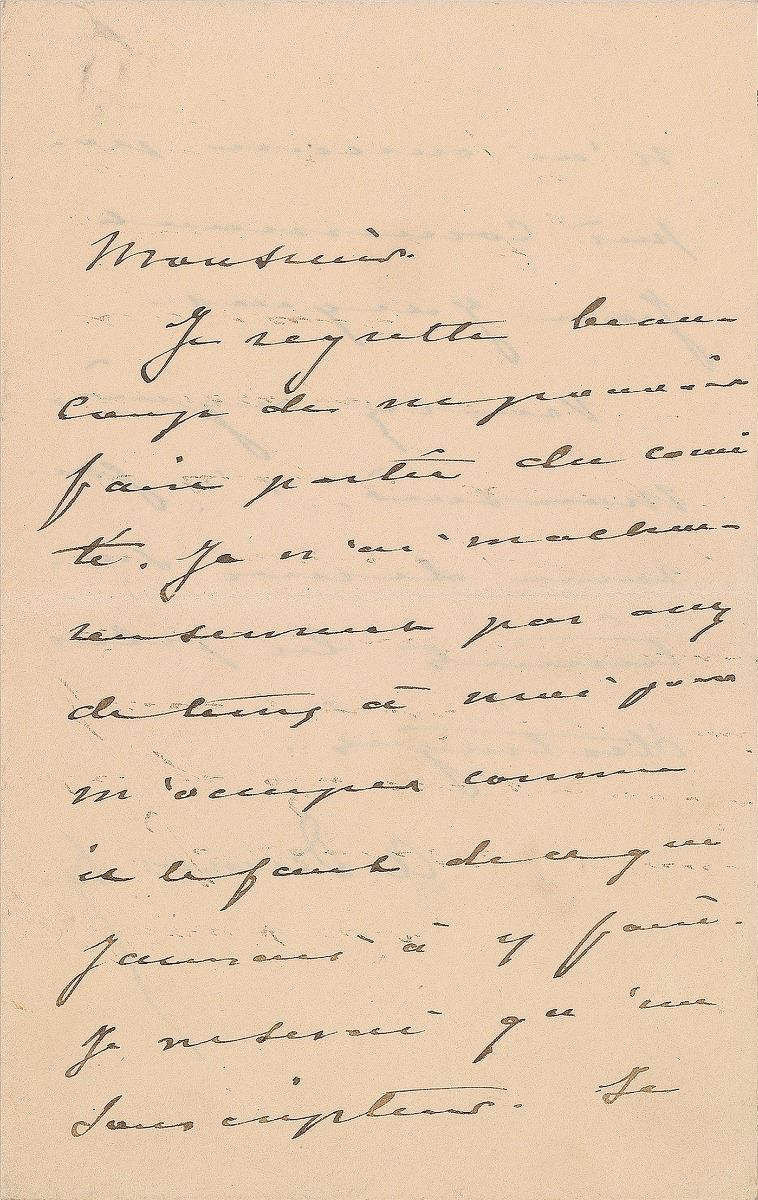 Monsieur.
Je regrette beau-
coup de ne pouvoir
faire partie du comi
té. Je n'ai malheu-
reusement pas assez
de temps à moi pour
m'occuper comme
il le faut de ce que
j'aurais à y faire.
Je ne serai qu'un
souscripteur. Je